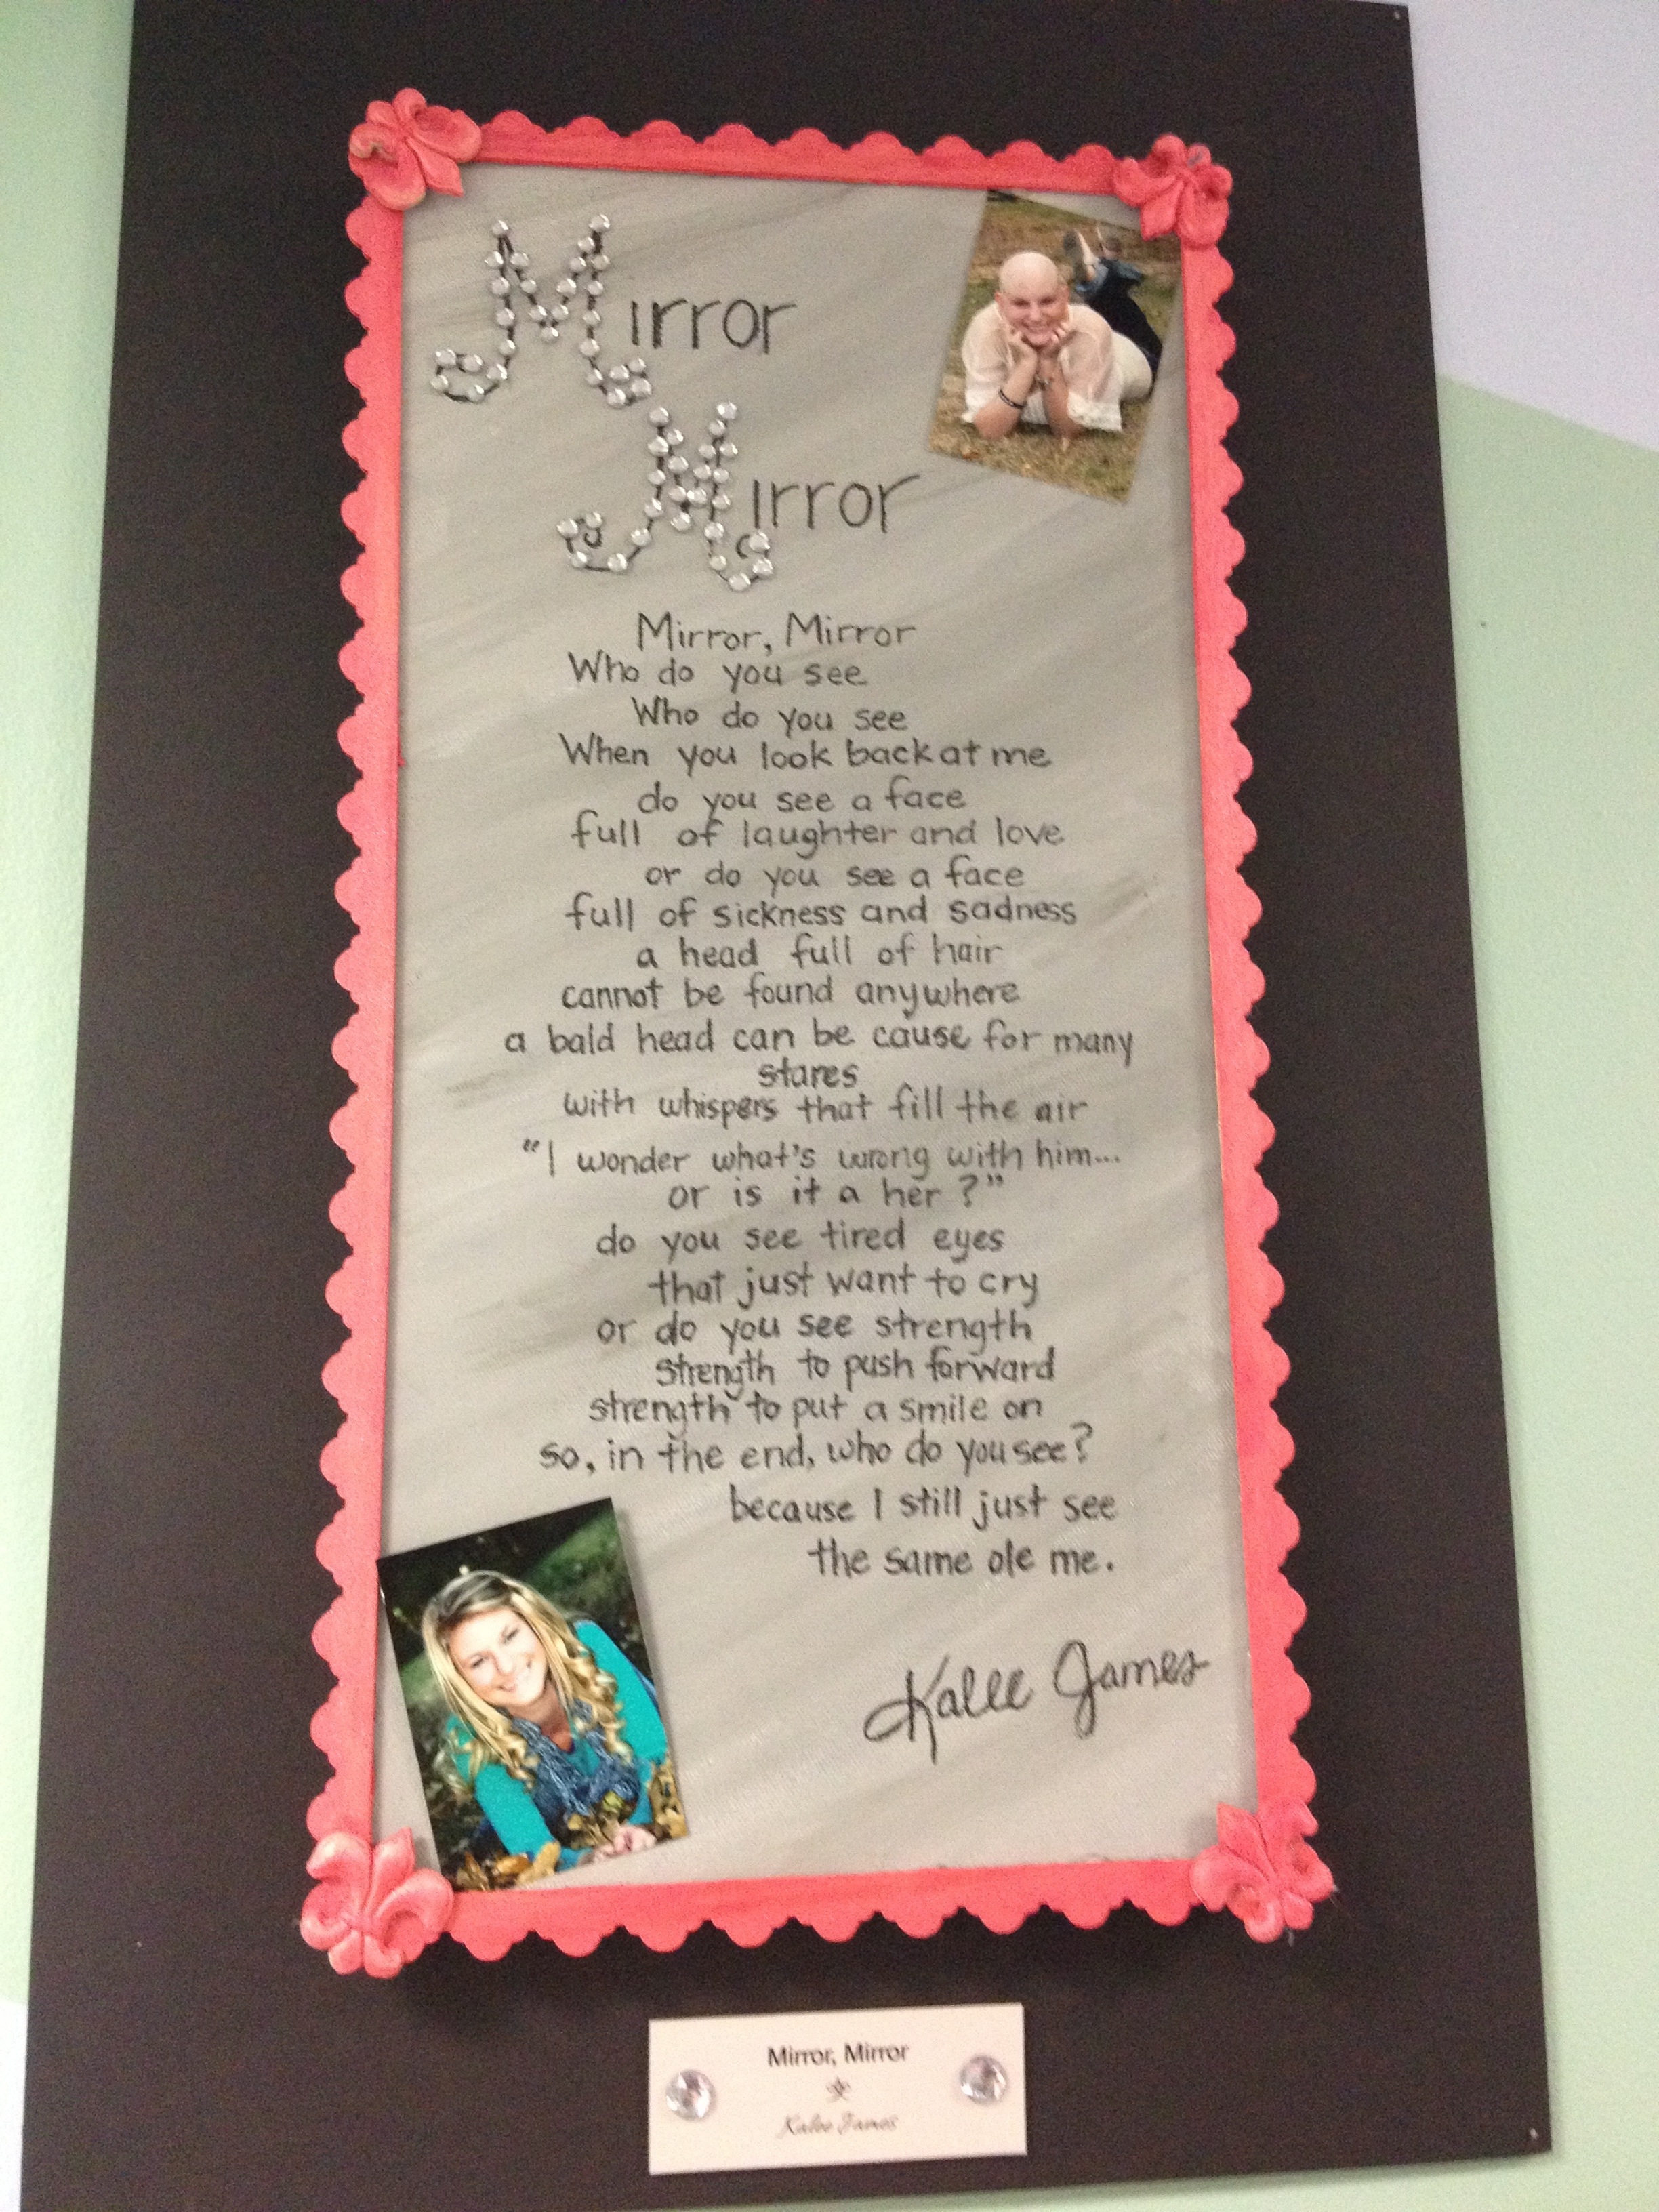 Mirror
Mirror
Mirror, Mirror
Who do you see
Who do you see
When you look back at me
do you see a face
full of laughter and love
or do you see a face
full of sickness and sadness
a head full of hair
cannot be found anywhere
a bald head can be cause for many
stares
with whispers that fill the air
"I wonder what's wrong with him...
or is it a her?"
do you see tired eyes
that just want to cry
or do you see strength
strength to push forward
strength to put a smile on
so, in the end, who do you see?
because I still just see
the same ole me.
Kalee James
Mirror, Mirror
Kalee James